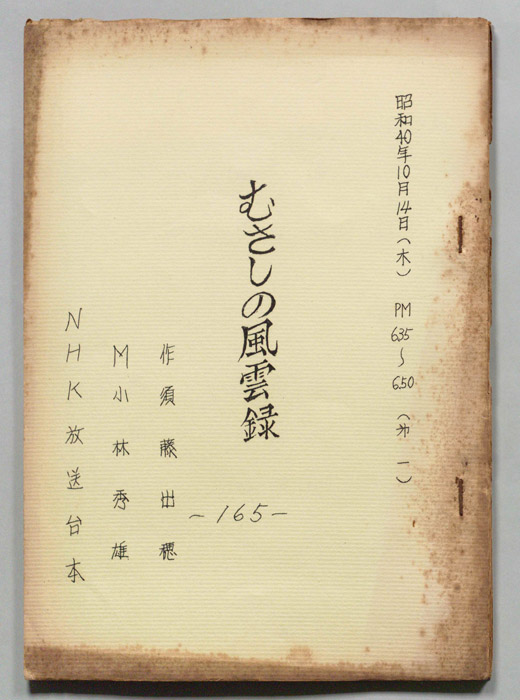 昭和40年10月14日(木) PM 6.35〜6.50 (㐧一)
むさしの風雲録
-165-
作 須藤出穂
M 小林秀雄
NHK放送台本